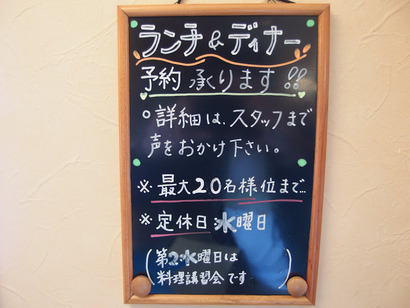 ランチ&ディナー
予約承ります!!
°詳細は、スタッフまで
声をおかけ下さい。
※最大20名様位まで…
※定休日:水曜日
(第2水曜日は
料理講習会です)